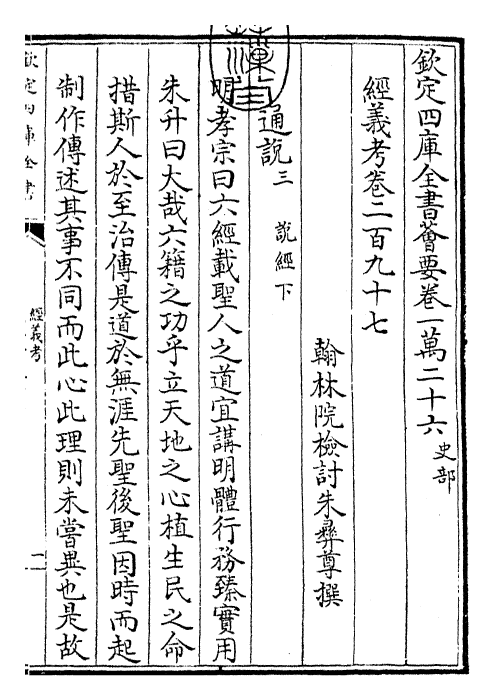 欽定四庫全書薈要卷一萬二十六史部
經義考卷二百九十七
翰林院檢討朱彝尊撰
通說三 說經下
明孝宗曰六經載聖人之道宜講明體行務臻實用
朱升曰大哉六籍之功乎立天地之心植生民之命
措斯人於至治傳是道於無涯先聖後聖因時而起
制作傳述其事不同而此心此理則未嘗異也是故
欽定四庫全書
經義考
一